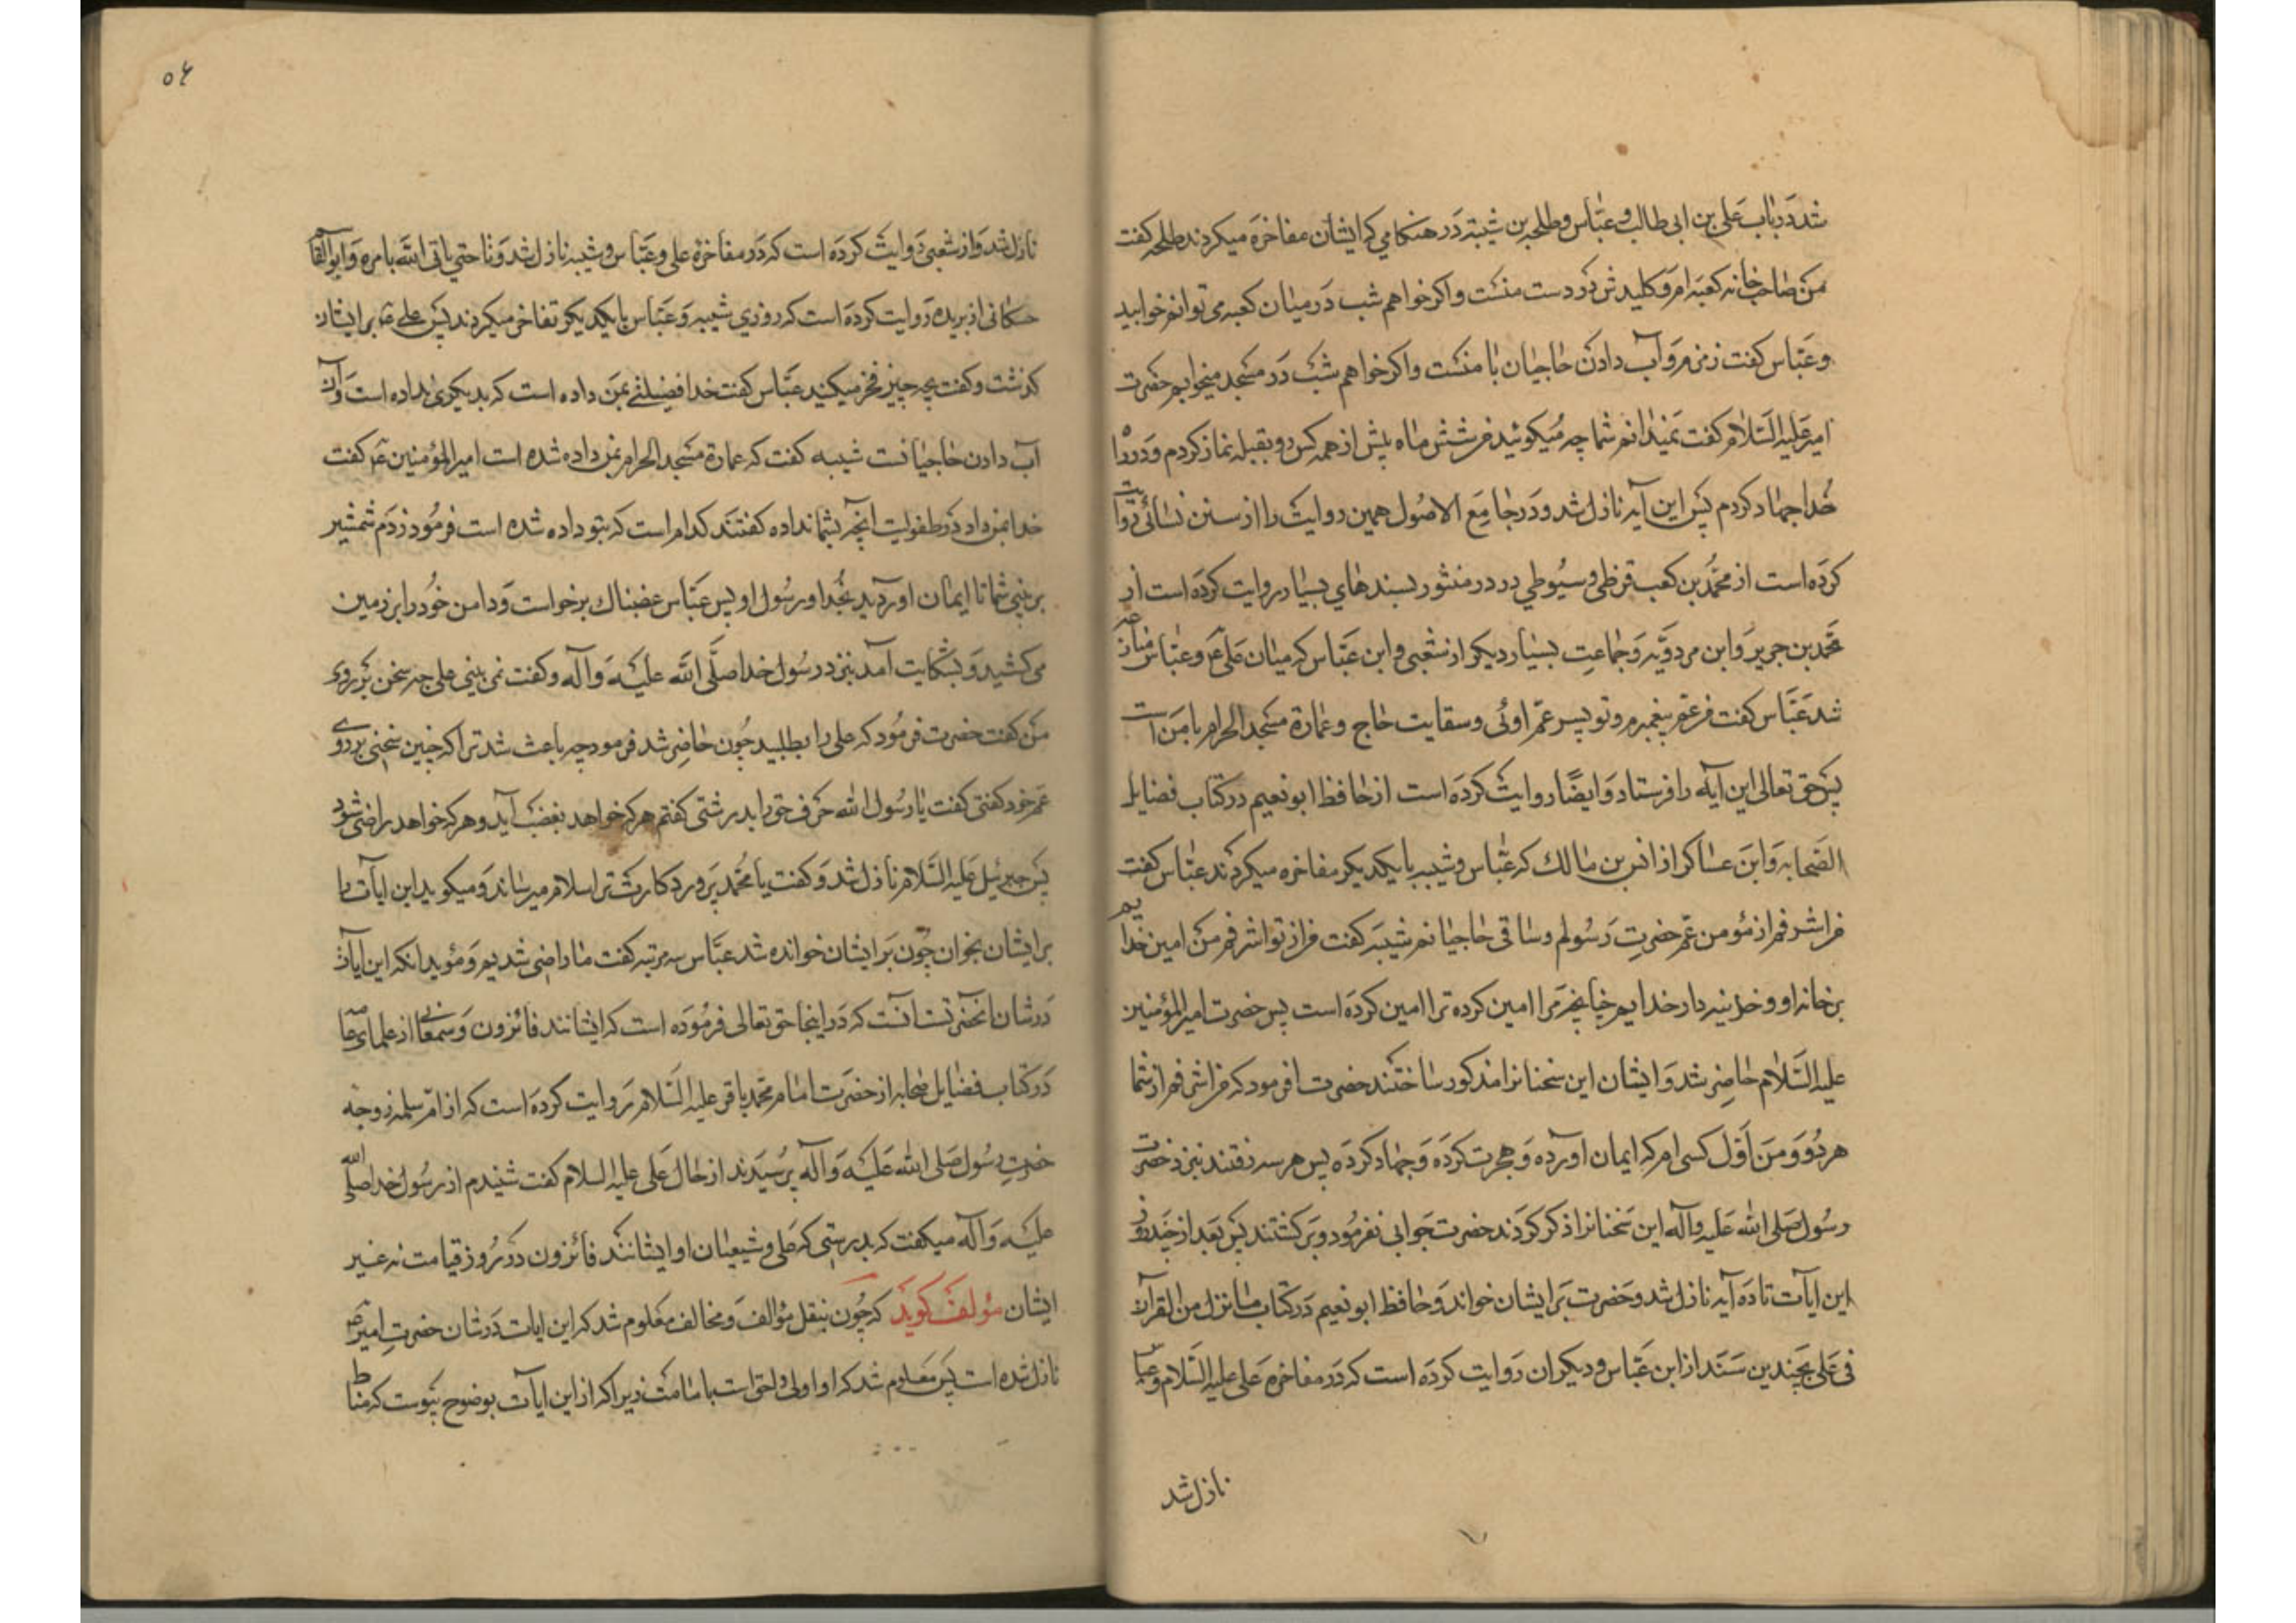 شد در باب علی بن ابی طالب و عباس و طلحه بن شیبه در هنکامی که ایشان مفاخره میکردند طلحه کفت
من صاحب خانه کعبه ام و کلیدش در دست منست و اکر خواهم شب در میان کعبه می توانم خوابید
و عباس کفت زمزم و آب دادن حاجیان با منست و اکر خواهم شب در مسجد میخوابم حضرت
امیر علیه السلام کفت نمیدانم شما چه میکوئید من شش ماه پیش از همه کس رو بقبله نماز کردم و در راه
خدا جهاد کردم پس این آیه نازل شد و در جامع الاصول همین روایت را از سنن نسائی روایت
کرده است از محمد بن کعب قرظی و سیوطی در در منثور بسندهای بسیار روایت کرده است از
محمد بن جریر و ابن مردویه و جماعت بسیار دیکر از شعبی و ابن عباس که میان علی ع و عباس منازعه
شد عباس کفت من عم پیغمبرم و تو پسر عم اوئی و سقایت حاج و عمارة مسجد الحرام با من است
پس حق تعالی این آیه را فرستاد و ایضا روایت کرده است از حافظ ابو نعیم در کتاب فضایل
الصحابه و ابن عساکر از انس بن مالک که عباس و شیبه بایکدیکر مفاخره میکردند عباس کفت
من اشرفم از تو من عم حضرت رسولم و ساقی حاجیانم شیبه کفت من از تو اشرفم من امین خدایم
بر خانه او و خزینه دار خدایم چنانچه مرا امین کرده ترا امین کرده است پس حضرت امیر المؤمنین
علیه السلام حاضر شد و ایشان این سخنانرا مذکور ساختند حضرت فرمود که من اشرفم از شما
هر دو و من اول کسی ام که ایمان اورده و هجرت کرده و جهاد کرده پس هر سه رفتند بنزد حضرت
رسول صلی الله علیه و آله این سخنانرا ذکر کردند حضرت جوابی نفرمود و برکشتند پس بعد از چند روز
این ایات تا ده آیه نازل شد و حضرت بر ایشان خواند و حافظ ابو نعیم در کتاب ما نزل من القرآن
فی علی بچندین سند از ابن عباس و دیکران روایت کرده است که در مفاخره علی علیه السلام و عباس
نازل شد
۵۴
نازل شد و از شعبی روایت کرده است که در مفاخرة علی و عباس و شیبه نازل شد و تا حتی یاتی الله بامره و ابو القاسم
حسکانی از بریده روایت کرده است که روزی شیبه و عباس بایکدیکر تفاخر میکردند پس علی ع بر ایشان
کذشت و کفت بچه چیز فخر میکنید عباس کفت خدا فضیلتی بمن داده است که بدیکری نداده است و آن
آب دادن حاجیانست شیبه کفت که عمارة مسجد الحرام بمن داده شده است امیر المؤمنین ع کفت
خدا بمن داد در طفولیت انچه بشما نداده کفتند کدام است که بتو داده شده است فرمود زدم شمشیر
بر بینی شما تا ایمان اوردید بخدا و رسول او پس عباس غضبناک برخواست و دامن خود را بر زمین
می کشید و بشکایت آمد بنزد رسول خدا صلی الله علیه و آله و کفت نمی بینی علی چه سخن بر روی
من کفت حضرت فرمود که علی را بطلبید چون حاضر شد فرمود چه باعث شد ترا که چنین سخنی بر روی
عم خود کفتی کفت یا رسول الله حرف حق را بدرشتی کفتم هر که خواهد بغضب آید و هر که خواهد راضی شود
پس جبرئیل علیه السلام نازل شد و کفت یا محمد پروردکارت ترا سلام میرساند و میکوید این ایات را
بر ایشان بخوان چون بر ایشان خوانده شد عباس سه مرتبه کفت ما راضی شدیم و مؤید انکه این ایات
در شان انحضرتست آنست که در اینجا حق تعالی فرموده است که ایشانند فائزون و سمعانی از علمای عامه
در کتاب فضایل صحابه از حضرت امام محمد باقر علیه السلام روایت کرده است که از ام سلمه زوجه
حضرت رسول صلی الله علیه و آله پرسیدند از حال علی علیه السلام کفت شنیدم از رسول خدا صلی الله
علیه و آله میکفت که بدرستی که علی و شیعیان او ایشانند فائزون در روز قیامت نه غیر
ایشان مؤلف کوید که چون بنقل مؤالف و مخالف معلوم شد که این ایات در شان حضرت امیر ع
نازل شده است پس معلوم شد که او اولی و احق است بامامت زیرا که از این ایات بوضوح پیوست که مناط